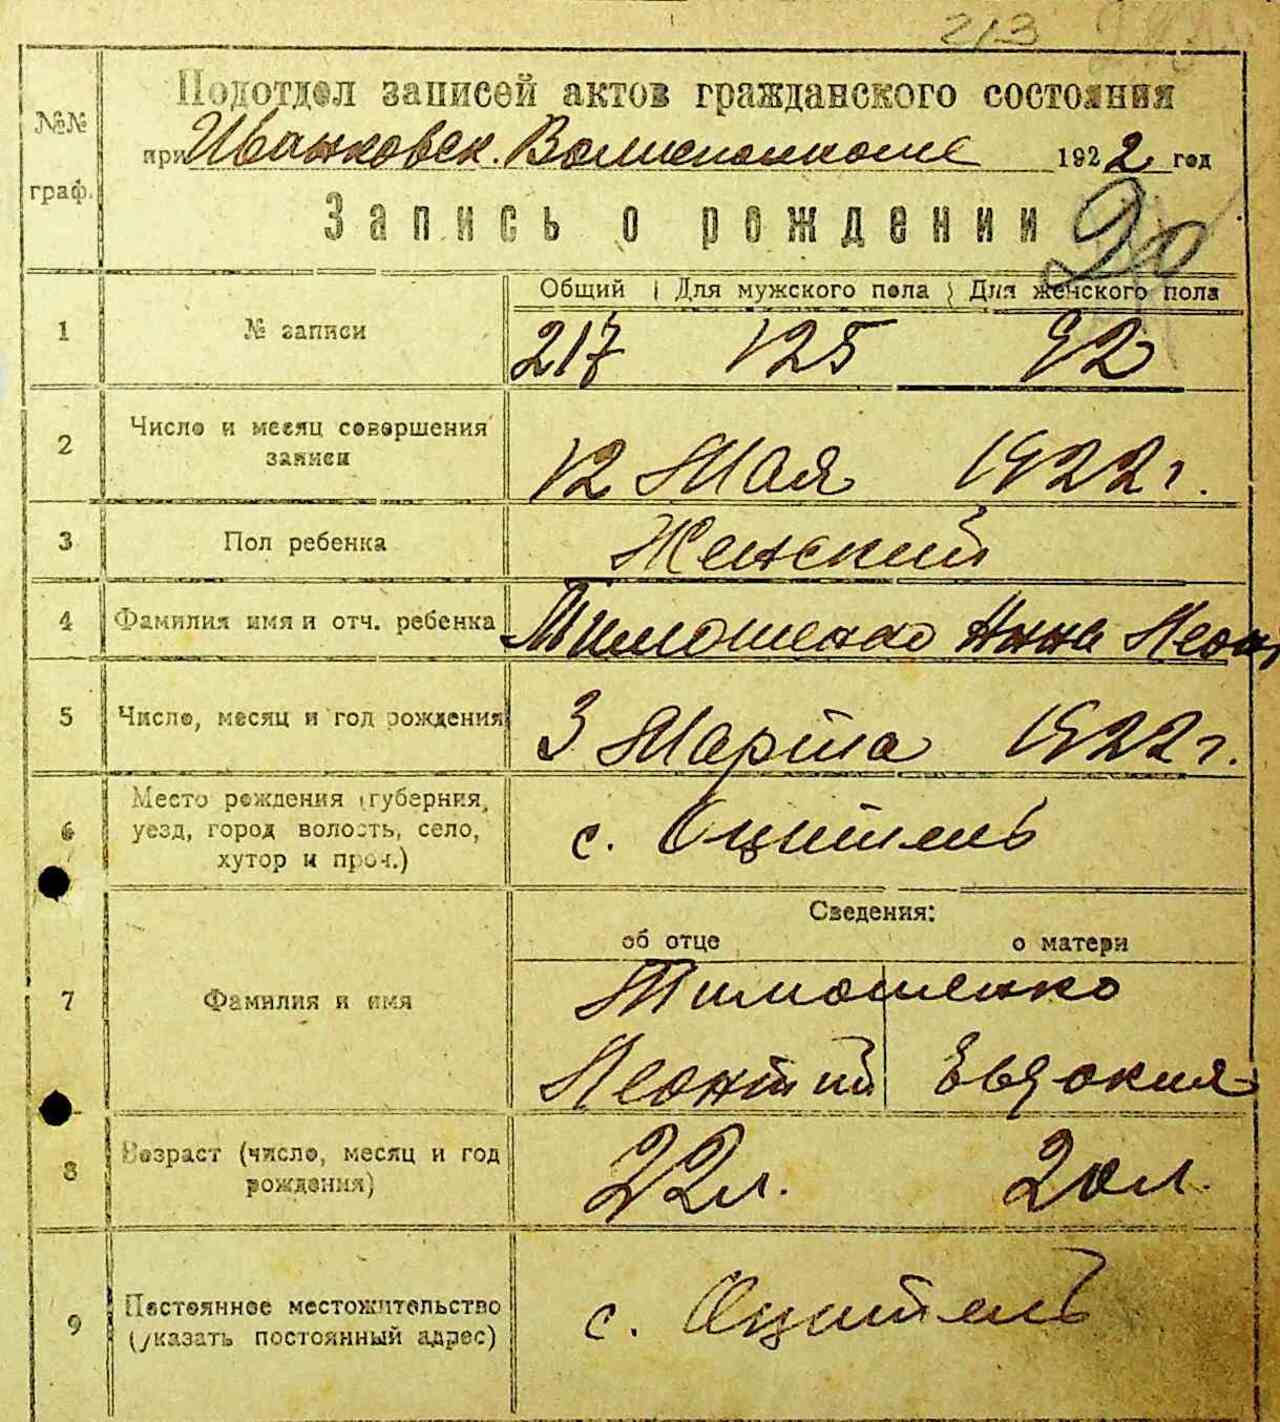 213
Подотдел записей актов гражданского состояния
№№ граф.
при Иванковск. Волисполкоме 1922 год
Запись о рождении
20
Общий Для мужского пола Для женского пола
1 № записи 217 125 92
2 Число и месяц совершения записи 12 Мая 1922 г.
3 Пол ребенка Женский
4 Фамилия имя и отч. ребенка Тимошенко Анна Леон
5 Число, месяц и год рождения 3 Марта 1922 г.
6 Место рождения (губерния,
уезд, город волость, село,
хутор и проч.)
с. Оцитель
Сведения:
об отце о матери
7 Фамилия и имя Тимошенко
Леонтий Евдокия
8 Возраст (число, месяц и год
рождения)
22 л. 20 л.
9 Постоянное местожительство
(указать постоянный адрес)
с. Оцитель